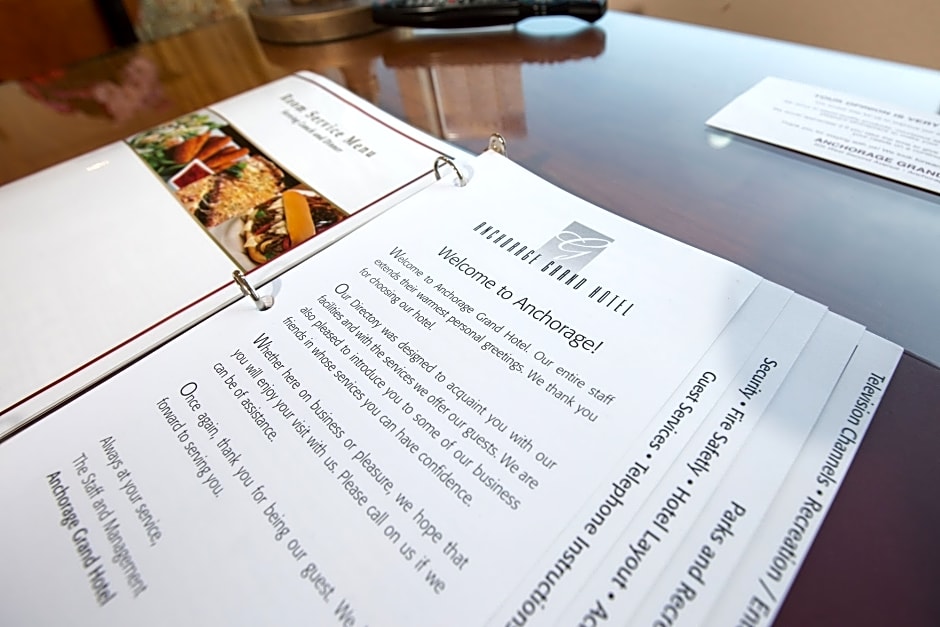 Room Service Menu
Serving Lunch and Dinner
ANCHORAGE GRAND HOTEL
Welcome to Anchorage!
Welcome to Anchorage Grand Hotel. Our entire staff
extends their warmest personal greetings. We thank you
for choosing our hotel.
Our Directory was designed to acquaint you with our
facilities and with the services we offer our guests. We are
also pleased to introduce you to some of our business
friends in whose services you can have confidence.
Whether here on business or pleasure, we hope that
you will enjoy your visit with us. Please call on us if we
can be of assistance.
Once again, thank you for being our guest. We
forward to serving you.
Always at your service,
The Staff and Management
Anchorage Grand Hotel
Guest Services • Telephone Instructions
Security • Fire Safety • Hotel Layout •
Parks and Recre
Television Channels • Recreation / Ente
YOUR OPINION IS VERY
ANCHORAGE GRAND